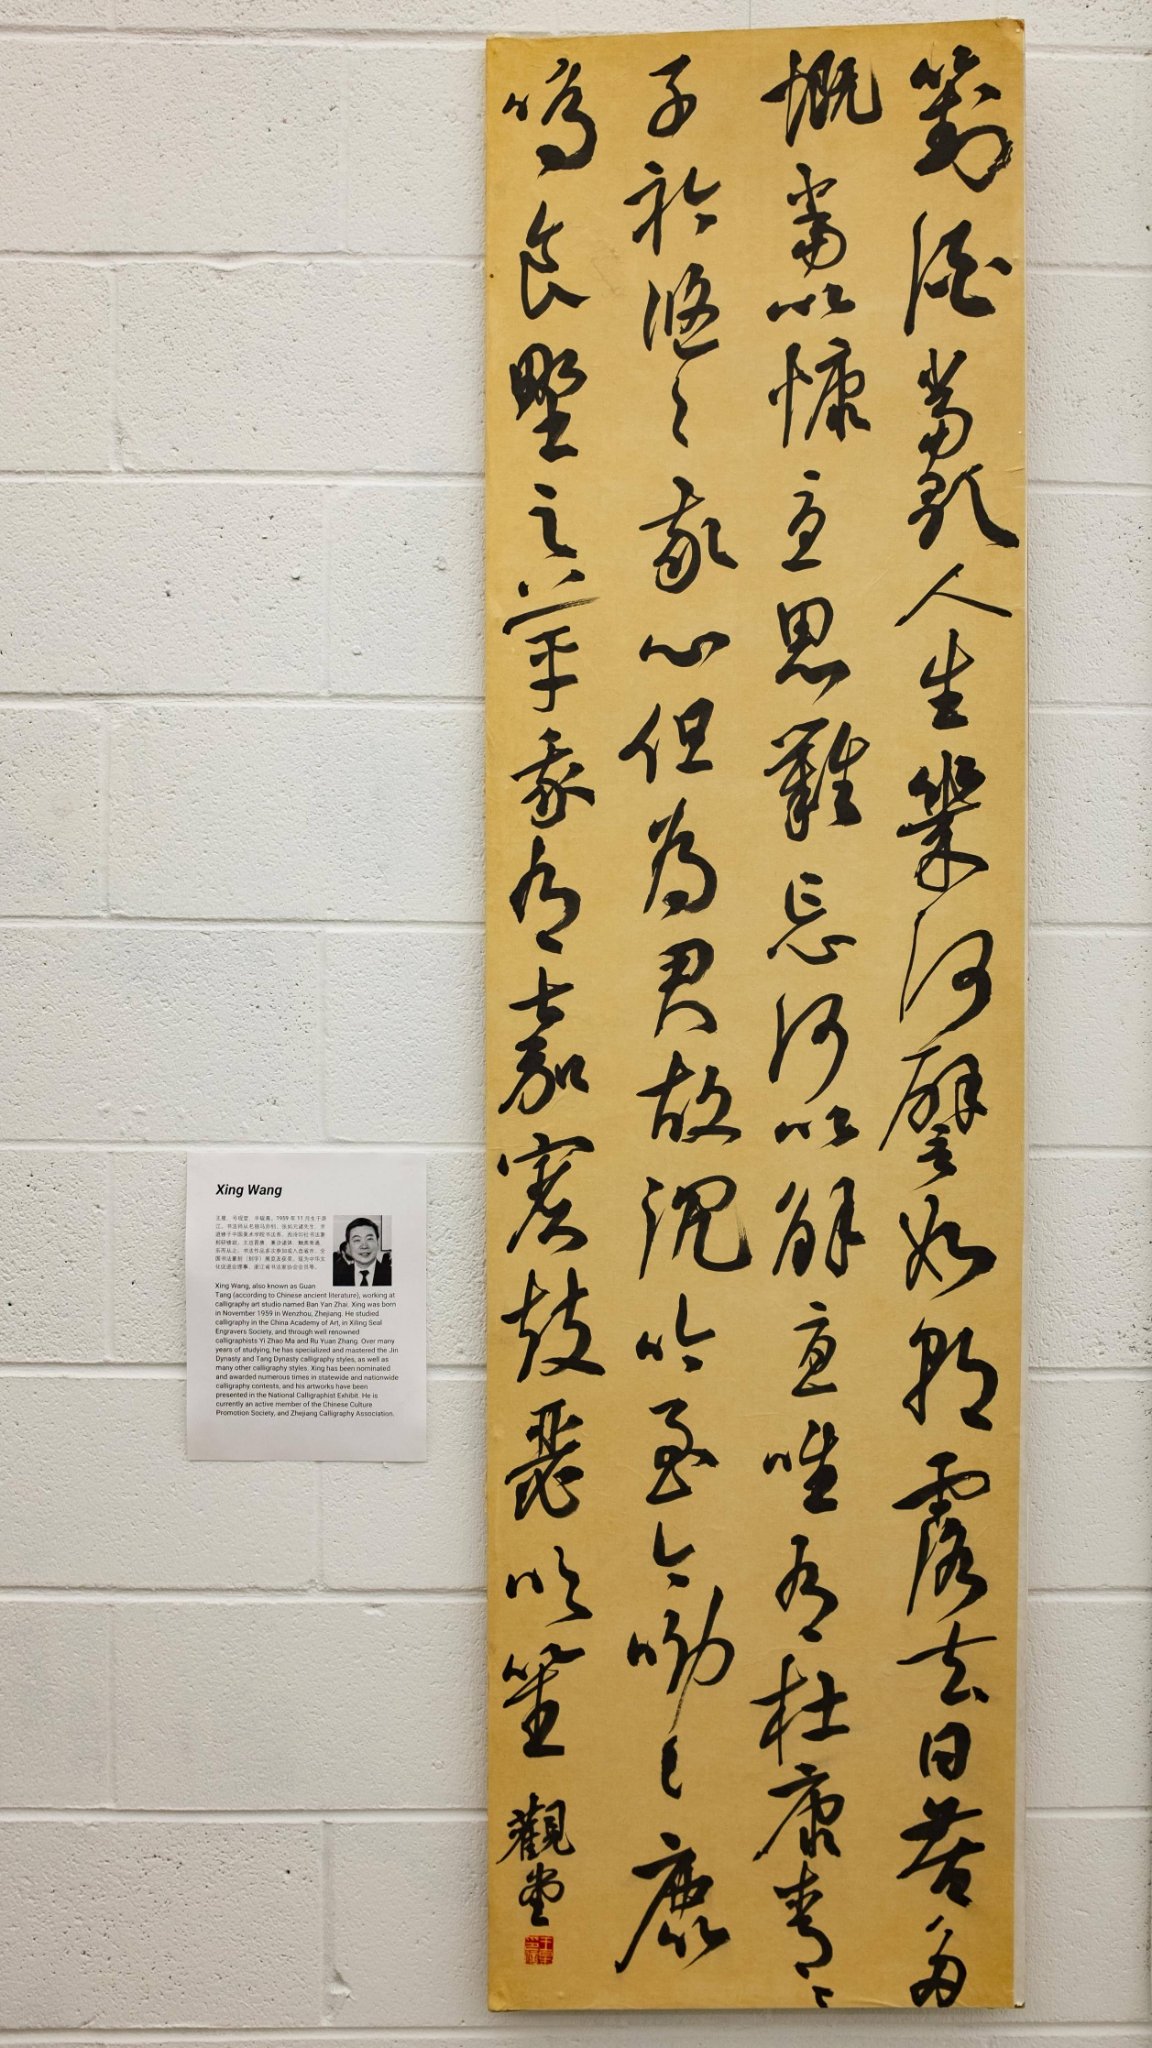 對酒當歌人生幾何譬如朝露去日苦多
慨當以慷憂思難忘何以解憂唯有杜康青〻
子衿悠〻我心但為君故沉吟至今呦〻鹿
鳴食野之苹我有嘉賓鼓瑟吹笙
觀堂
Xing Wang
Xing Wang, also known as Guan
Tang (according to Chinese ancient literature), working at
calligraphy art studio named Ban Yan Zhai. Xing was born
in November 1959 in Wenzhou, Zhejiang. He studied
calligraphy in the China Academy of Art, in Xiling Seal
Engravers Society, and through well renowned
calligraphists Yi Zhao Ma and Ru Yuan Zhang. Over many
years of studying, he has specialized and mastered the Jin
Dynasty and Tang Dynasty calligraphy styles, as well as
many other calligraphy styles. Xing has been nominated
and awarded numerous times in statewide and nationwide
calligraphy contests, and his artworks have been
presented in the National Calligraphist Exhibit. He is
currently an active member of the Chinese Culture
Promotion Society, and Zhejiang Calligraphy Association.